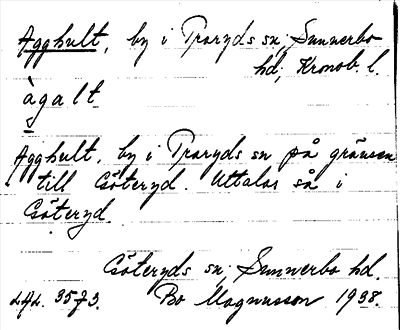 Agghult, by i Traryds sn, Sunnerbo
hd, Kronob. l.
àgalt
Agghult, by i Traryds sn på gränsen
till Göteryd. Uttalas så i
Göteryd.
Göteryds sn, Sunnerbo hd.
3573. Bo Magnusson 1938.